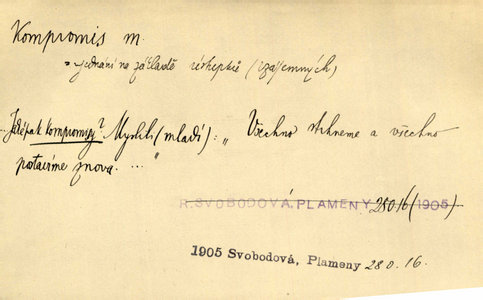 Kompromis m.
= jednání na základě ústupků (vzájemných)
..Jaképak kompromisy? Myslili (mladí): „Všechno strhneme a všechno
postavíme znova. ..."
R. SVOBODOVÁ. PLAMENY 280.16 (1905)
1905 Svobodová, Plameny 280.16.